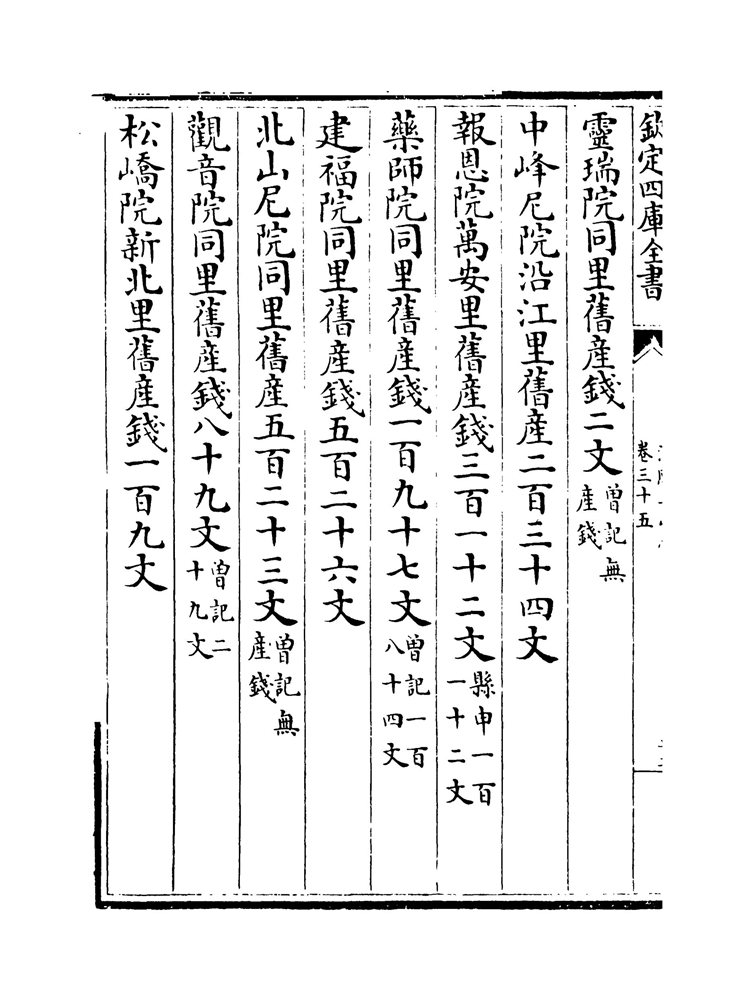 欽定四庫全書
卷三十五
靈瑞院同里舊産錢二文曽記無産錢
中峰尼院沿江里舊産二百三十四文
報恩院萬安里舊産錢三百一十二文縣申一百一十二文
藥師院同里舊産錢一百九十七文曽記一百八十四文
建福院同里舊産錢五百二十六文
北山尼院同里舊産五百二十三文曽記無産錢
觀音院同里舊産錢八十九文曽記二十九文
松嶠院新北里舊産錢一百九文